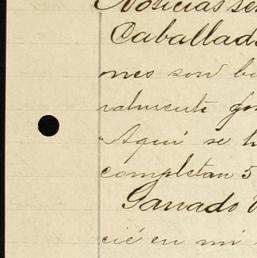 Noticias se
Caballad
nes son b
ralmente
Aquí se h
completan 5
Ganado
cié en mi